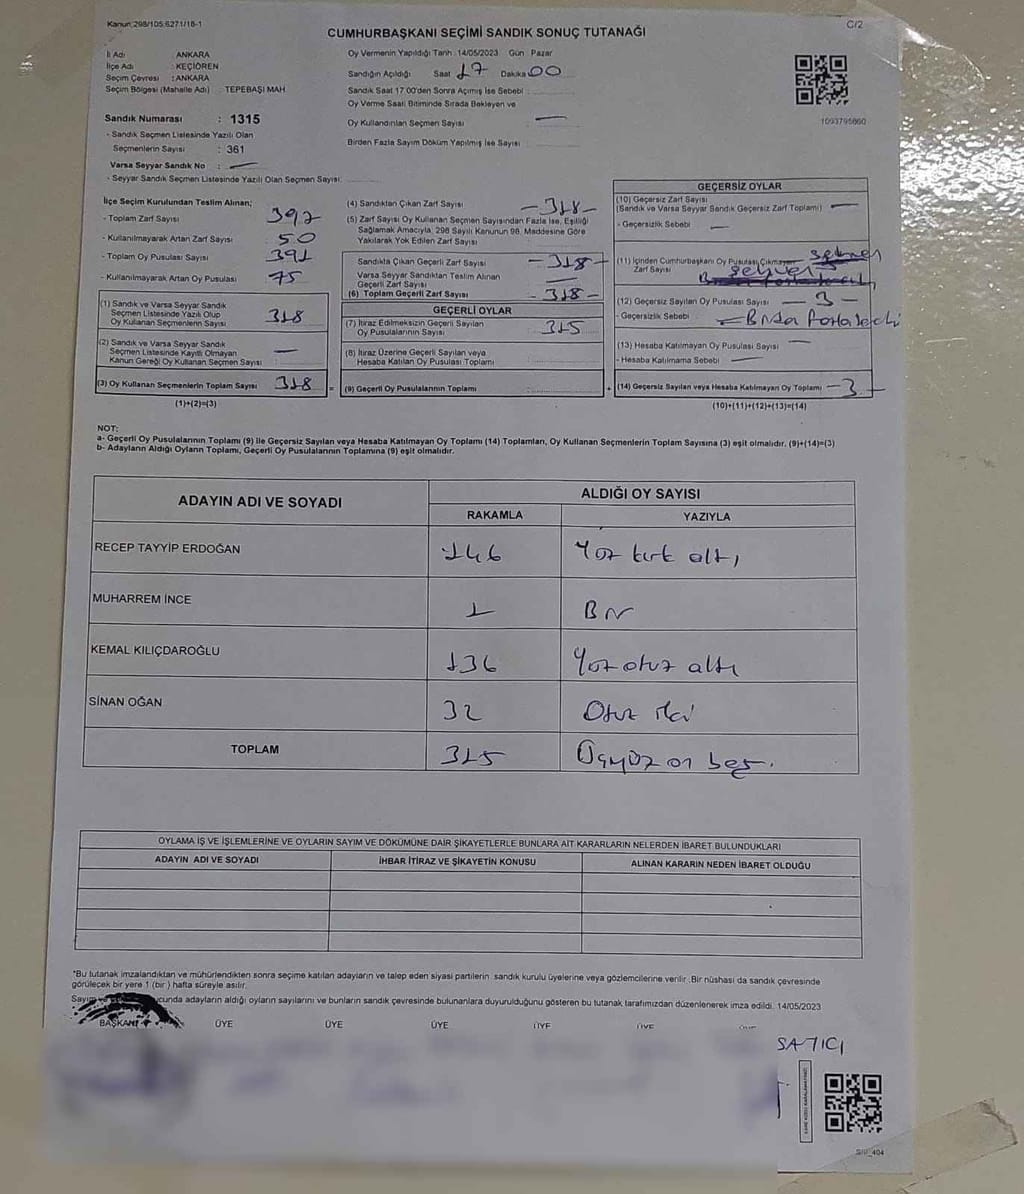 Kanun 298/105 6271/18-1
C/2
CUMHURBAŞKANI SEÇİMİ SANDIK SONUÇ TUTANAĞI
İl Adı ANKARA
İlçe Adı : KEÇİÖREN
Seçim Çevresi : ANKARA
Seçim Bölgesi (Mahalle Adı) : TEPEBAŞI MAH
Sandık Numarası : 1315
- Sandık Seçmen Listesinde Yazılı Olan
Seçmenlerin Sayısı : 361
Varsa Seyyar Sandık No : —
- Seyyar Sandık Seçmen Listesinde Yazılı Olan Seçmen Sayısı:
Oy Vermenin Yapıldığı Tarih : 14/05/2023 Gün : Pazar
Sandığın Açıldığı Saat 17 Dakika 00
Sandık Saat 17.00'den Sonra Açılmış İse Sebebi :
Oy Verme Saati Bitiminde Sırada Bekleyen ve
Oy Kullandırılan Seçmen Sayısı : —
Birden Fazla Sayım Döküm Yapılmış İse Sayısı :
1093795660
İlçe Seçim Kurulundan Teslim Alınan;
- Toplam Zarf Sayısı : 397
- Kullanılmayarak Artan Zarf Sayısı : 50
- Toplam Oy Pusulası Sayısı : 391
- Kullanılmayarak Artan Oy Pusulası : 75
(1) Sandık ve Varsa Seyyar Sandık
Seçmen Listesinde Yazılı Olup
Oy Kullanan Seçmenlerin Sayısı : 318
(2) Sandık ve Varsa Seyyar Sandık
Seçmen Listesinde Kayıtlı Olmayan
Kanun Gereği Oy Kullanan Seçmen Sayısı : —
(3) Oy Kullanan Seçmenlerin Toplam Sayısı : 318
(1)+(2)=(3)
(4) Sandıktan Çıkan Zarf Sayısı : -318-
(5) Zarf Sayısı Oy Kullanan Seçmen Sayısından Fazla İse, Eşitliği
Sağlamak Amacıyla, 298 Sayılı Kanunun 98. Maddesine Göre
Yakılarak Yok Edilen Zarf Sayısı :
Sandıkta Çıkan Geçerli Zarf Sayısı : -318-
Varsa Seyyar Sandıktan Teslim Alınan
Geçerli Zarf Sayısı :
(6) Toplam Geçerli Zarf Sayısı : -318-
GEÇERLİ OYLAR
(7) İtiraz Edilmeksizin Geçerli Sayılan
Oy Pusulalarının Sayısı : 315
(8) İtiraz Üzerine Geçerli Sayılan veya
Hesaba Katılan Oy Pusulası Toplamı :
= (9) Geçerli Oy Pusulalarının Toplamı :
GEÇERSİZ OYLAR
(10) Geçersiz Zarf Sayısı
(Sandık ve Varsa Seyyar Sandık Geçersiz Zarf Toplamı) : —
- Geçersizlik Sebebi : —
(11) İçinden Cumhurbaşkanı Oy Pusulası Çıkmayan
Zarf Sayısı
(12) Geçersiz Sayılan Oy Pusulası Sayısı : — 3 —
- Geçersizlik Sebebi
(13) Hesaba Katılmayan Oy Pusulası Sayısı : —
- Hesaba Katılmama Sebebi : —
+ (14) Geçersiz Sayılan veya Hesaba Katılmayan Oy Toplamı : -3-
(10)+(11)+(12)+(13)=(14)
NOT:
a- Geçerli Oy Pusulalarının Toplamı (9) ile Geçersiz Sayılan veya Hesaba Katılmayan Oy Toplamı (14) Toplamları, Oy Kullanan Seçmenlerin Toplam Sayısına (3) eşit olmalıdır. (9)+(14)=(3)
b- Adayların Aldığı Oyların Toplamı, Geçerli Oy Pusulalarının Toplamına (9) eşit olmalıdır.
ADAYIN ADI VE SOYADI ALDIĞI OY SAYISI
RAKAMLA YAZIYLA
RECEP TAYYİP ERDOĞAN 146 Yüz kırk altı
MUHARREM İNCE 1 Bir
KEMAL KILIÇDAROĞLU 136 Yüz otuz altı
SİNAN OĞAN 32 Otuz iki
TOPLAM 315 Üçyüz on beş.
OYLAMA İŞ VE İŞLEMLERİNE VE OYLARIN SAYIM VE DÖKÜMÜNE DAİR ŞİKAYETLERLE BUNLARA AİT KARARLARIN NELERDEN İBARET BULUNDUKLARI
ADAYIN ADI VE SOYADI İHBAR İTİRAZ VE ŞİKAYETİN KONUSU ALINAN KARARIN NEDEN İBARET OLDUĞU
*Bu tutanak imzalandıktan ve mühürlendikten sonra seçime katılan adayların ve talep eden siyasi partilerin sandık kurulu üyelerine veya gözlemcilerine verilir. Bir nüshası da sandık çevresinde
görülecek bir yere 1 (bir) hafta süreyle asılır.
Sayım ve ucunda adayların aldığı oyların sayılarını ve bunların sandık çevresinde bulunanlara duyurulduğunu gösteren bu tutanak tarafımızdan düzenlenerek imza edildi. 14/05/2023
BAŞKAN ÜYE ÜYE ÜYE ÜYE ÜYE
SATICI